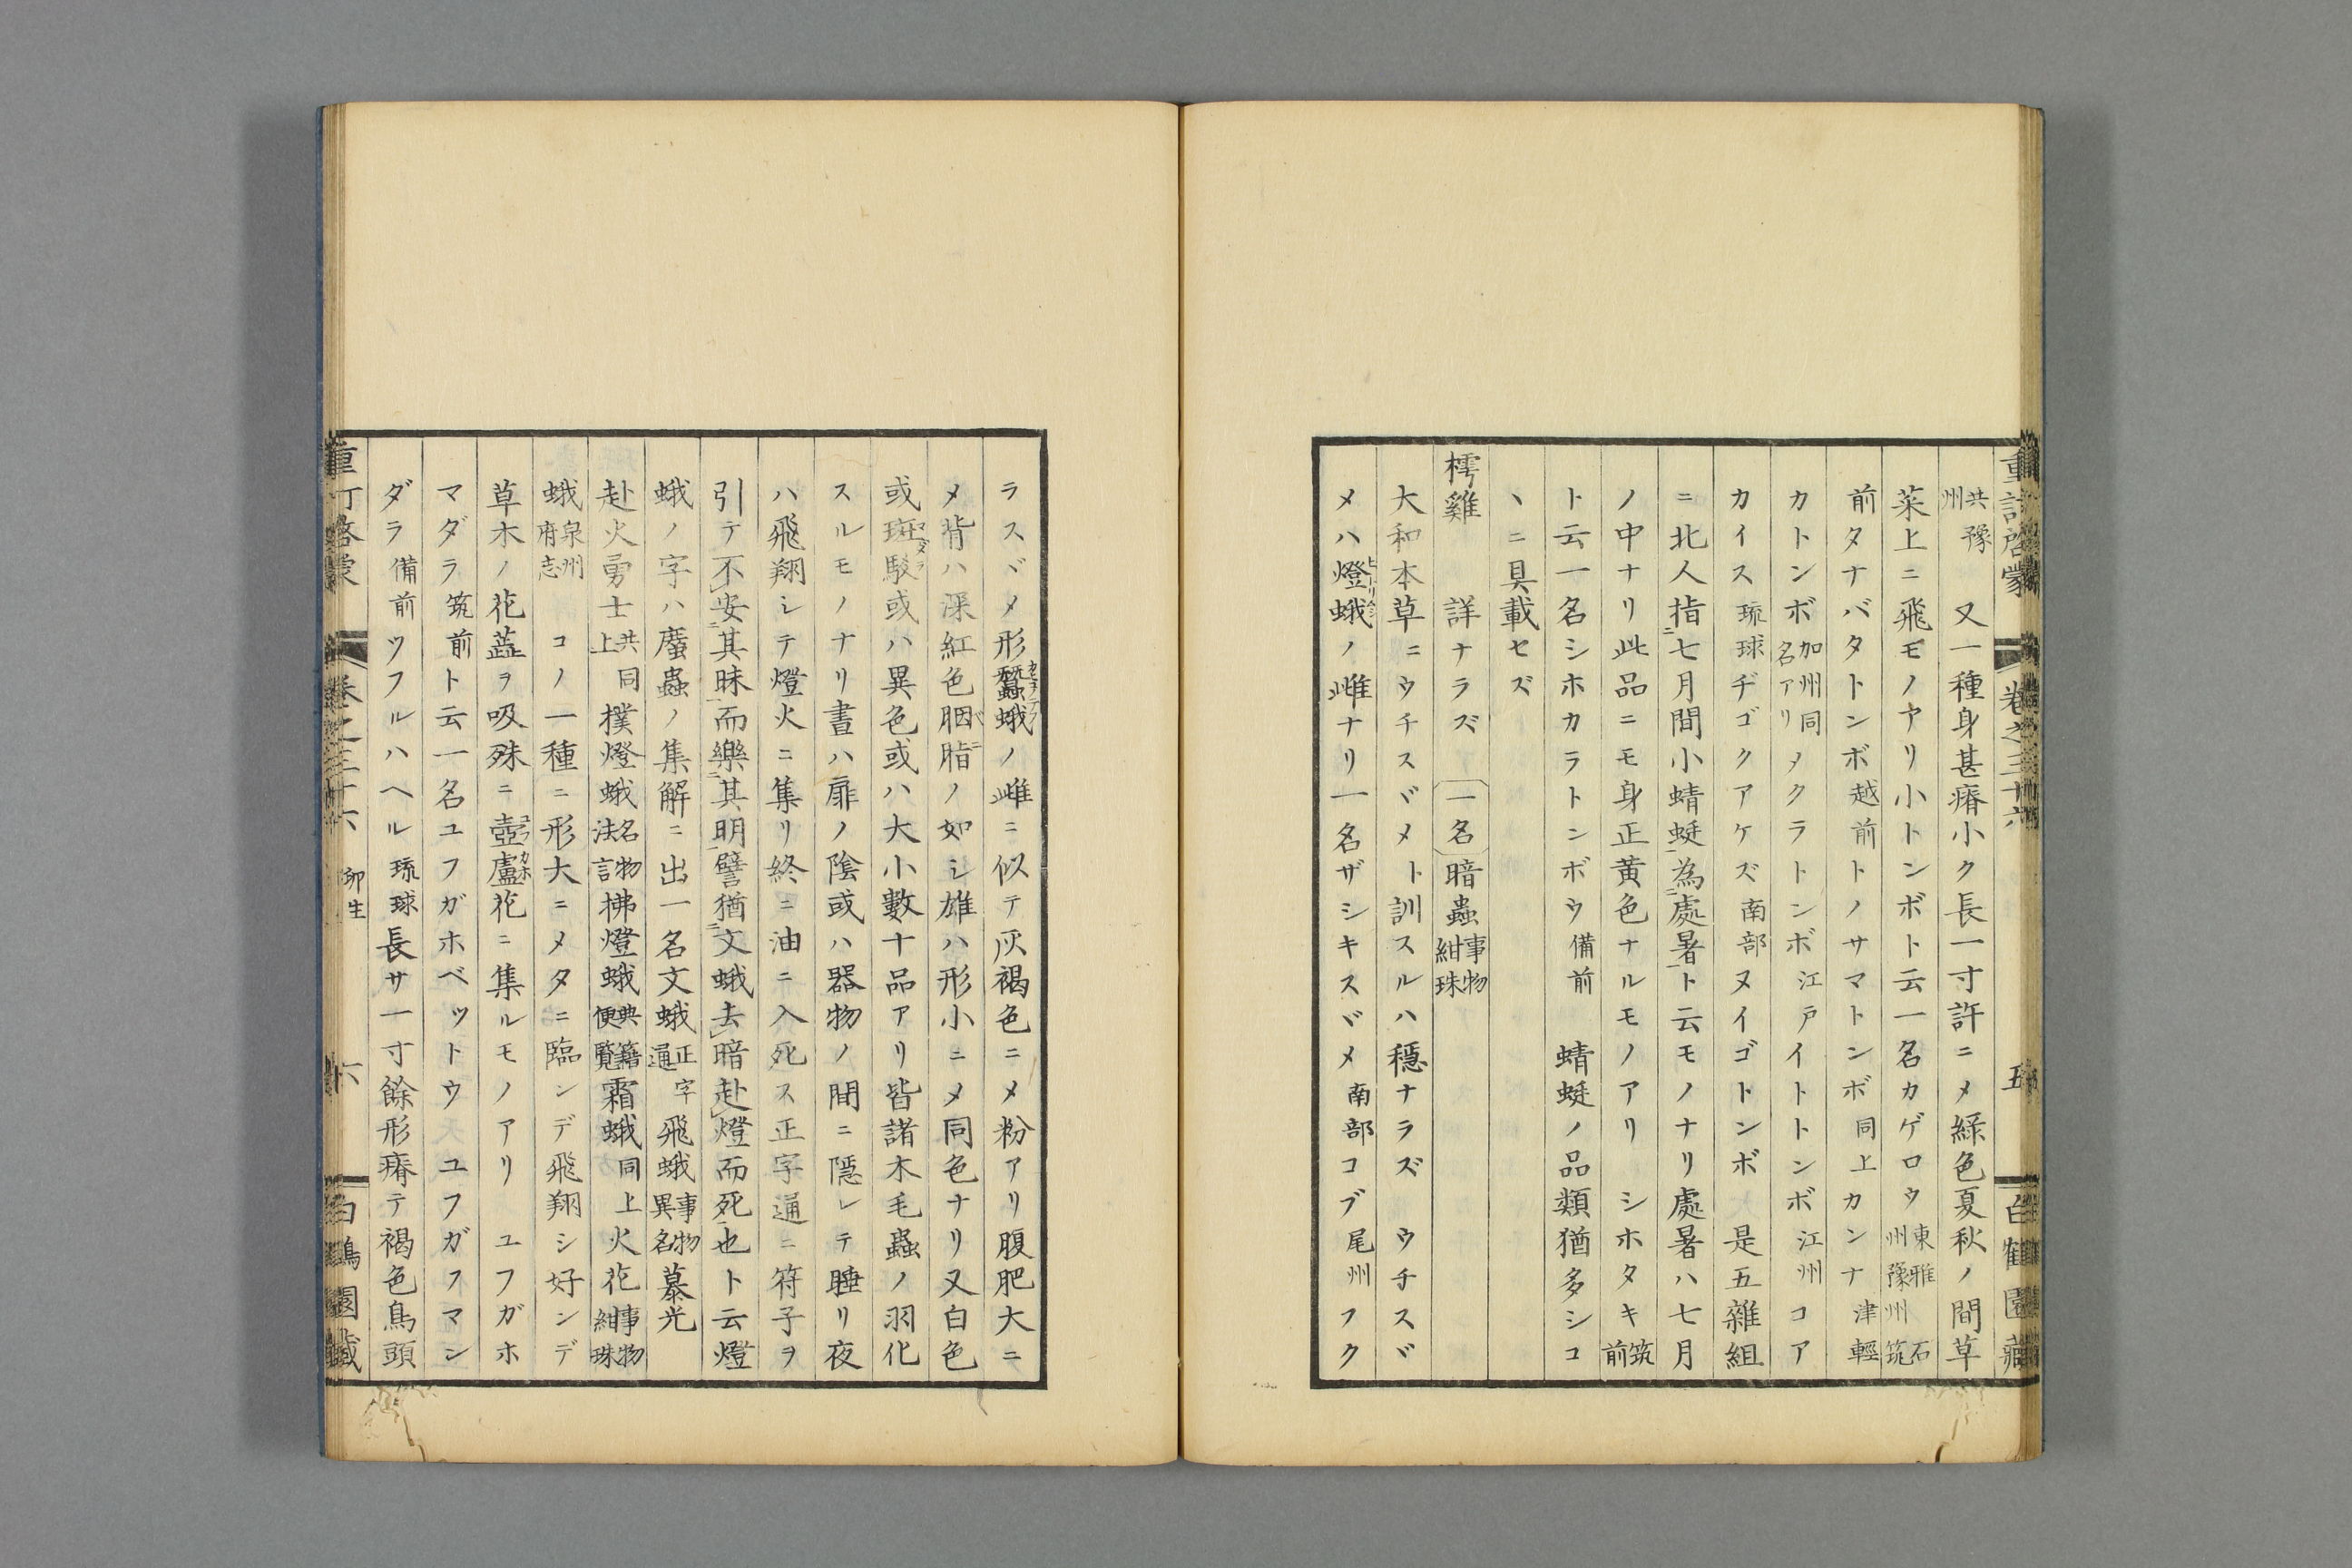 重訂啓蒙 卷之三十六 五 白鶴園藏
州共豫 又一種身甚瘠小ク長一寸許ニメ綠色夏秋ノ間草
菜上ニ飛モノアリ小トンボト云一名カゲロウ東雅石州豫州筑
前タナバタトンボ越前トノサマトンボ同上カンナ津輕
カトンボ加州同名アリメクラトンボ江戸イトトンボ江州コア
カイス琉球ヂゴクアケズ南部ヌイゴトンボ 是五雜組
ニ北人指ニ七月間小蜻蜓一為ニ處暑一ト云モノナリ處暑ハ七月
ノ中ナリ此品ニモ身正黄色ナルモノアリ シホタキ筑前
ト云一名シホカラトンボウ備前 蜻蜓ノ品類猶多シコ
ヽニ具載セズ
樗雞 詳ナラズ 一名 暗蟲事物紺珠
大和本草ニウチスヾメト訓スルハ穏ナラズ ウチスヾ
メハ燈蛾ノ雌ナリ一名ザシキスヾメ南部コブ尾州フク
ラスヾメ形蠶蛾ノ雌ニ似テ灰褐色ニメ粉アリ腹肥大ニ
メ背ハ深紅色胭脂ノ如シ雄ハ形小ニメ同色ナリ又白色
或斑駁或ハ異色或ハ大小數十品アリ皆諸木毛蟲ノ羽化
スルモノナリ晝ハ扉ノ陰或ハ器物ノ間ニ隱レテ睡リ夜
ハ飛翔シテ燈火ニ集リ終ニ油ニ入死ス正字通ニ符子ヲ
引テ不安ニ其昧一而樂ニ其明一譬猶ニ文蛾去暗赴燈而死一也ト云燈
蛾ノ字ハ䘀蟲ノ集解ニ出一名文蛾正字通飛蛾事物異名慕光
赴火勇士共同上撲燈蛾名物法言拂燈蛾典籍便覽霜蛾同上火花事物紺珠
蛾泉州府志 コノ一種ニ形大ニメタニ臨ンデ飛翔シ好ンデ
草木ノ花蕋ヲ吸殊ニ壺盧花ニ集ルモノアリ ユフガホ
マダラ筑前ト云一名ユフガホベットウ ユフガフマン
ダラ備前ツフルハヘル琉球長サ一寸餘形瘠テ褐色鳥頭
重訂啓蒙 卷之三十六 卵生 六 白鶴園藏